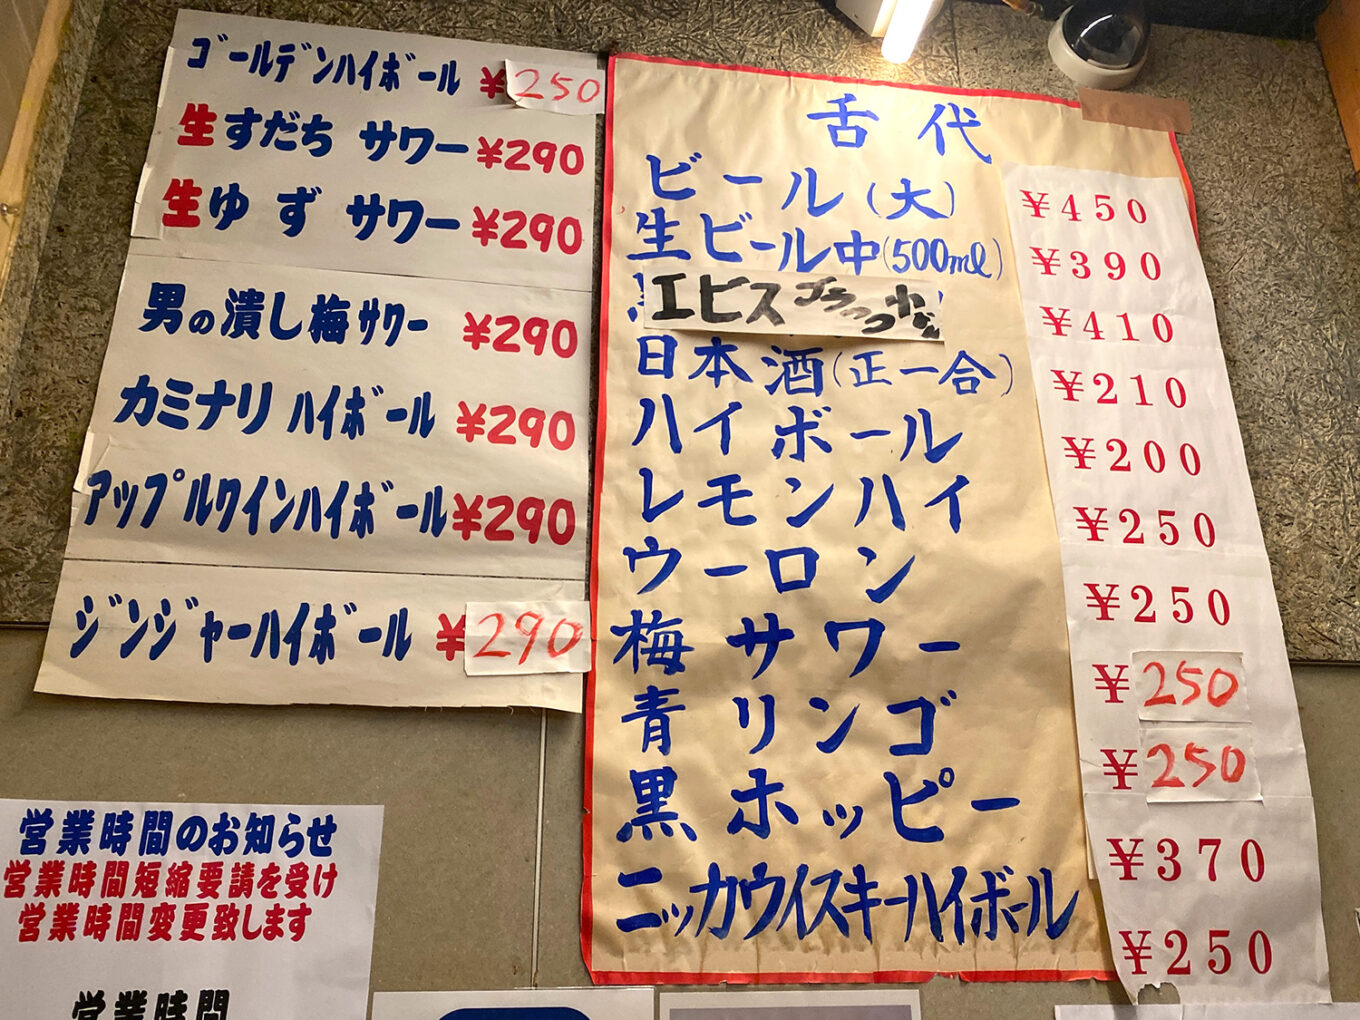 ゴールデンハイボール ¥250
生すだち サワー ¥290
生ゆず サワー ¥290
男の潰し梅サワー ¥290
カミナリ ハイボール ¥290
アップルワインハイボール ¥290
ジンジャーハイボール ¥290
舌代
ビール(大) ¥450
生ビール中(500ml) ¥390
エビス ¥410
日本酒(正一合) ¥210
ハイボール ¥200
レモンハイ ¥250
ウーロン ¥250
梅サワー ¥250
青リンゴ ¥250
黒ホッピー ¥370
ニッカウイスキーハイボール ¥250
営業時間のお知らせ
営業時間短縮要請を受け
営業時間変更致します
営業時間